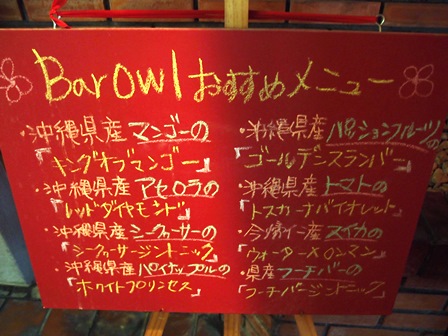 Bar Owl おすすめメニュー
・沖縄県産マンゴーの
『キングオブマンゴー』
・沖縄県産アセロラの
『レッドダイヤモンド』
・沖縄県産シークヮーサーの
『シークヮーサージントニック』
・沖縄県産パイナップルの
『ホワイトプリンセス』
・沖縄県産パッションフルーツの
『ゴールデンスランバー』
・沖縄県産トマトの
『トスカーナバイオレット』
・今帰仁産スイカの
『ウォーターメロンマン』
・県産フーチバーの
『フーチバージントニック』